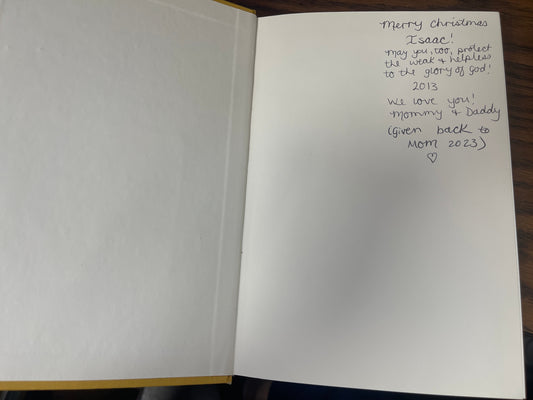 Merry Christmas
Isaac!
May you, too, protect
the weak & helpless
to the glory of God!
2013
We love you!
Mommy & Daddy
(Given back to
Mom 2023)
♡